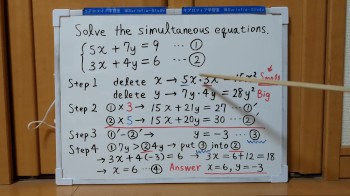 Solve the simultaneous equations.
5x + 7y = 9 … ①
3x + 4y = 6 … ②
Step 1 delete x → 5x·3x = 15x² Small
delete y → 7y·4y = 28y² Big
Step 2 ① × 3 → 15x + 21y = 27 … ①′
② × 5 → 15x + 20y = 30 … ②′
Step 3 ①′ - ②′ → y = -3 … ③
Step 4 7y > 4y → put ③ into ②
→ 3x + 4(-3) = 6 → 3x = 6 + 12 = 18
→ x = 6 … ④ Answer x = 6, y = -3